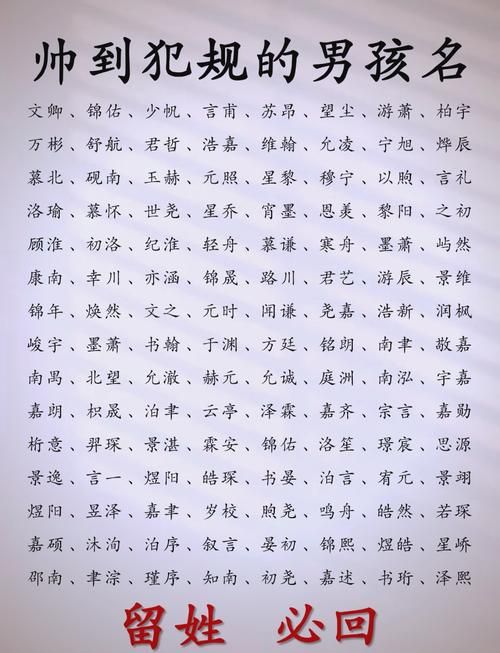 帅到犯规的男孩名
文卿、锦佑、少帆、言甫、苏昂、望尘、游萧、柏宇
万彬、舒航、君哲、浩嘉、维翰、允凌、宁旭、烨辰
慕北、砚南、玉赫、元照、星黎、穆宁、以煦、言礼
洛瑜、慕怀、世尧、星乔、宵墨、恩美、黎阳、之初
顾淮、初洛、纪淮、轻舟、慕谦、寒舟、墨萧、屿然
康南、幸川、亦涵、锦晟、路川、君艺、游辰、景维
锦年、焕然、文之、元时、闻谦、尧嘉、浩新、润枫
峻宇、墨萧、书翰、于渊、方廷、铭朗、南聿、敬嘉
南禺、北望、允澈、赫元、允诚、庭洲、南泓、宇嘉
嘉朗、枳晟、泊聿、云亭、泽霖、嘉齐、宗言、嘉勋
桁意、羿琛、景湛、霖安、锦佑、洛笙、璟宸、思源
景逸、言一、煜阳、皓琛、书晏、泊言、宥元、景翊
煜阳、昱泽、嘉聿、岁校、煦尧、鸣舟、皓然、若琛
嘉硕、沐洵、泊序、叙言、晏初、锦熙、煜皓、星峤
邵南、聿淙、瑾序、知南、初尧、嘉述、书珩、泽熙
留姓 必回